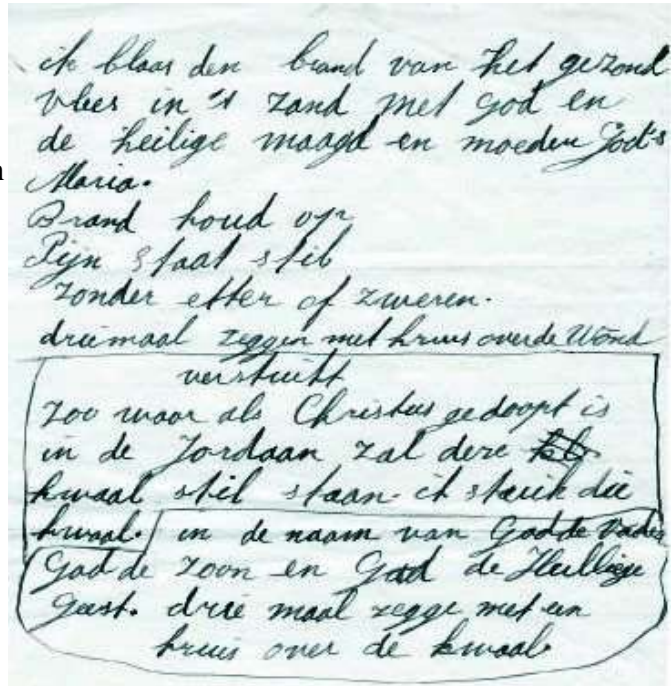 ik blaas den brand van het gezond
vlees in 't zand met god en
de heilige maagd en moeder Gods
Maria.
Brand houd op
Pijn staat stil
zonder etter of zweren.
driemaal zeggen met kruis over de Wond
verstuikt
Zoo waar als Christus gedoopt is
in de Jordaan zal deze
kwaal stil staan. ik stuik die
kwaal. in de naam van God de Vader
God de zoon en God de Heillige
Geest. drie maal zegge met een
kruis over de kwaal